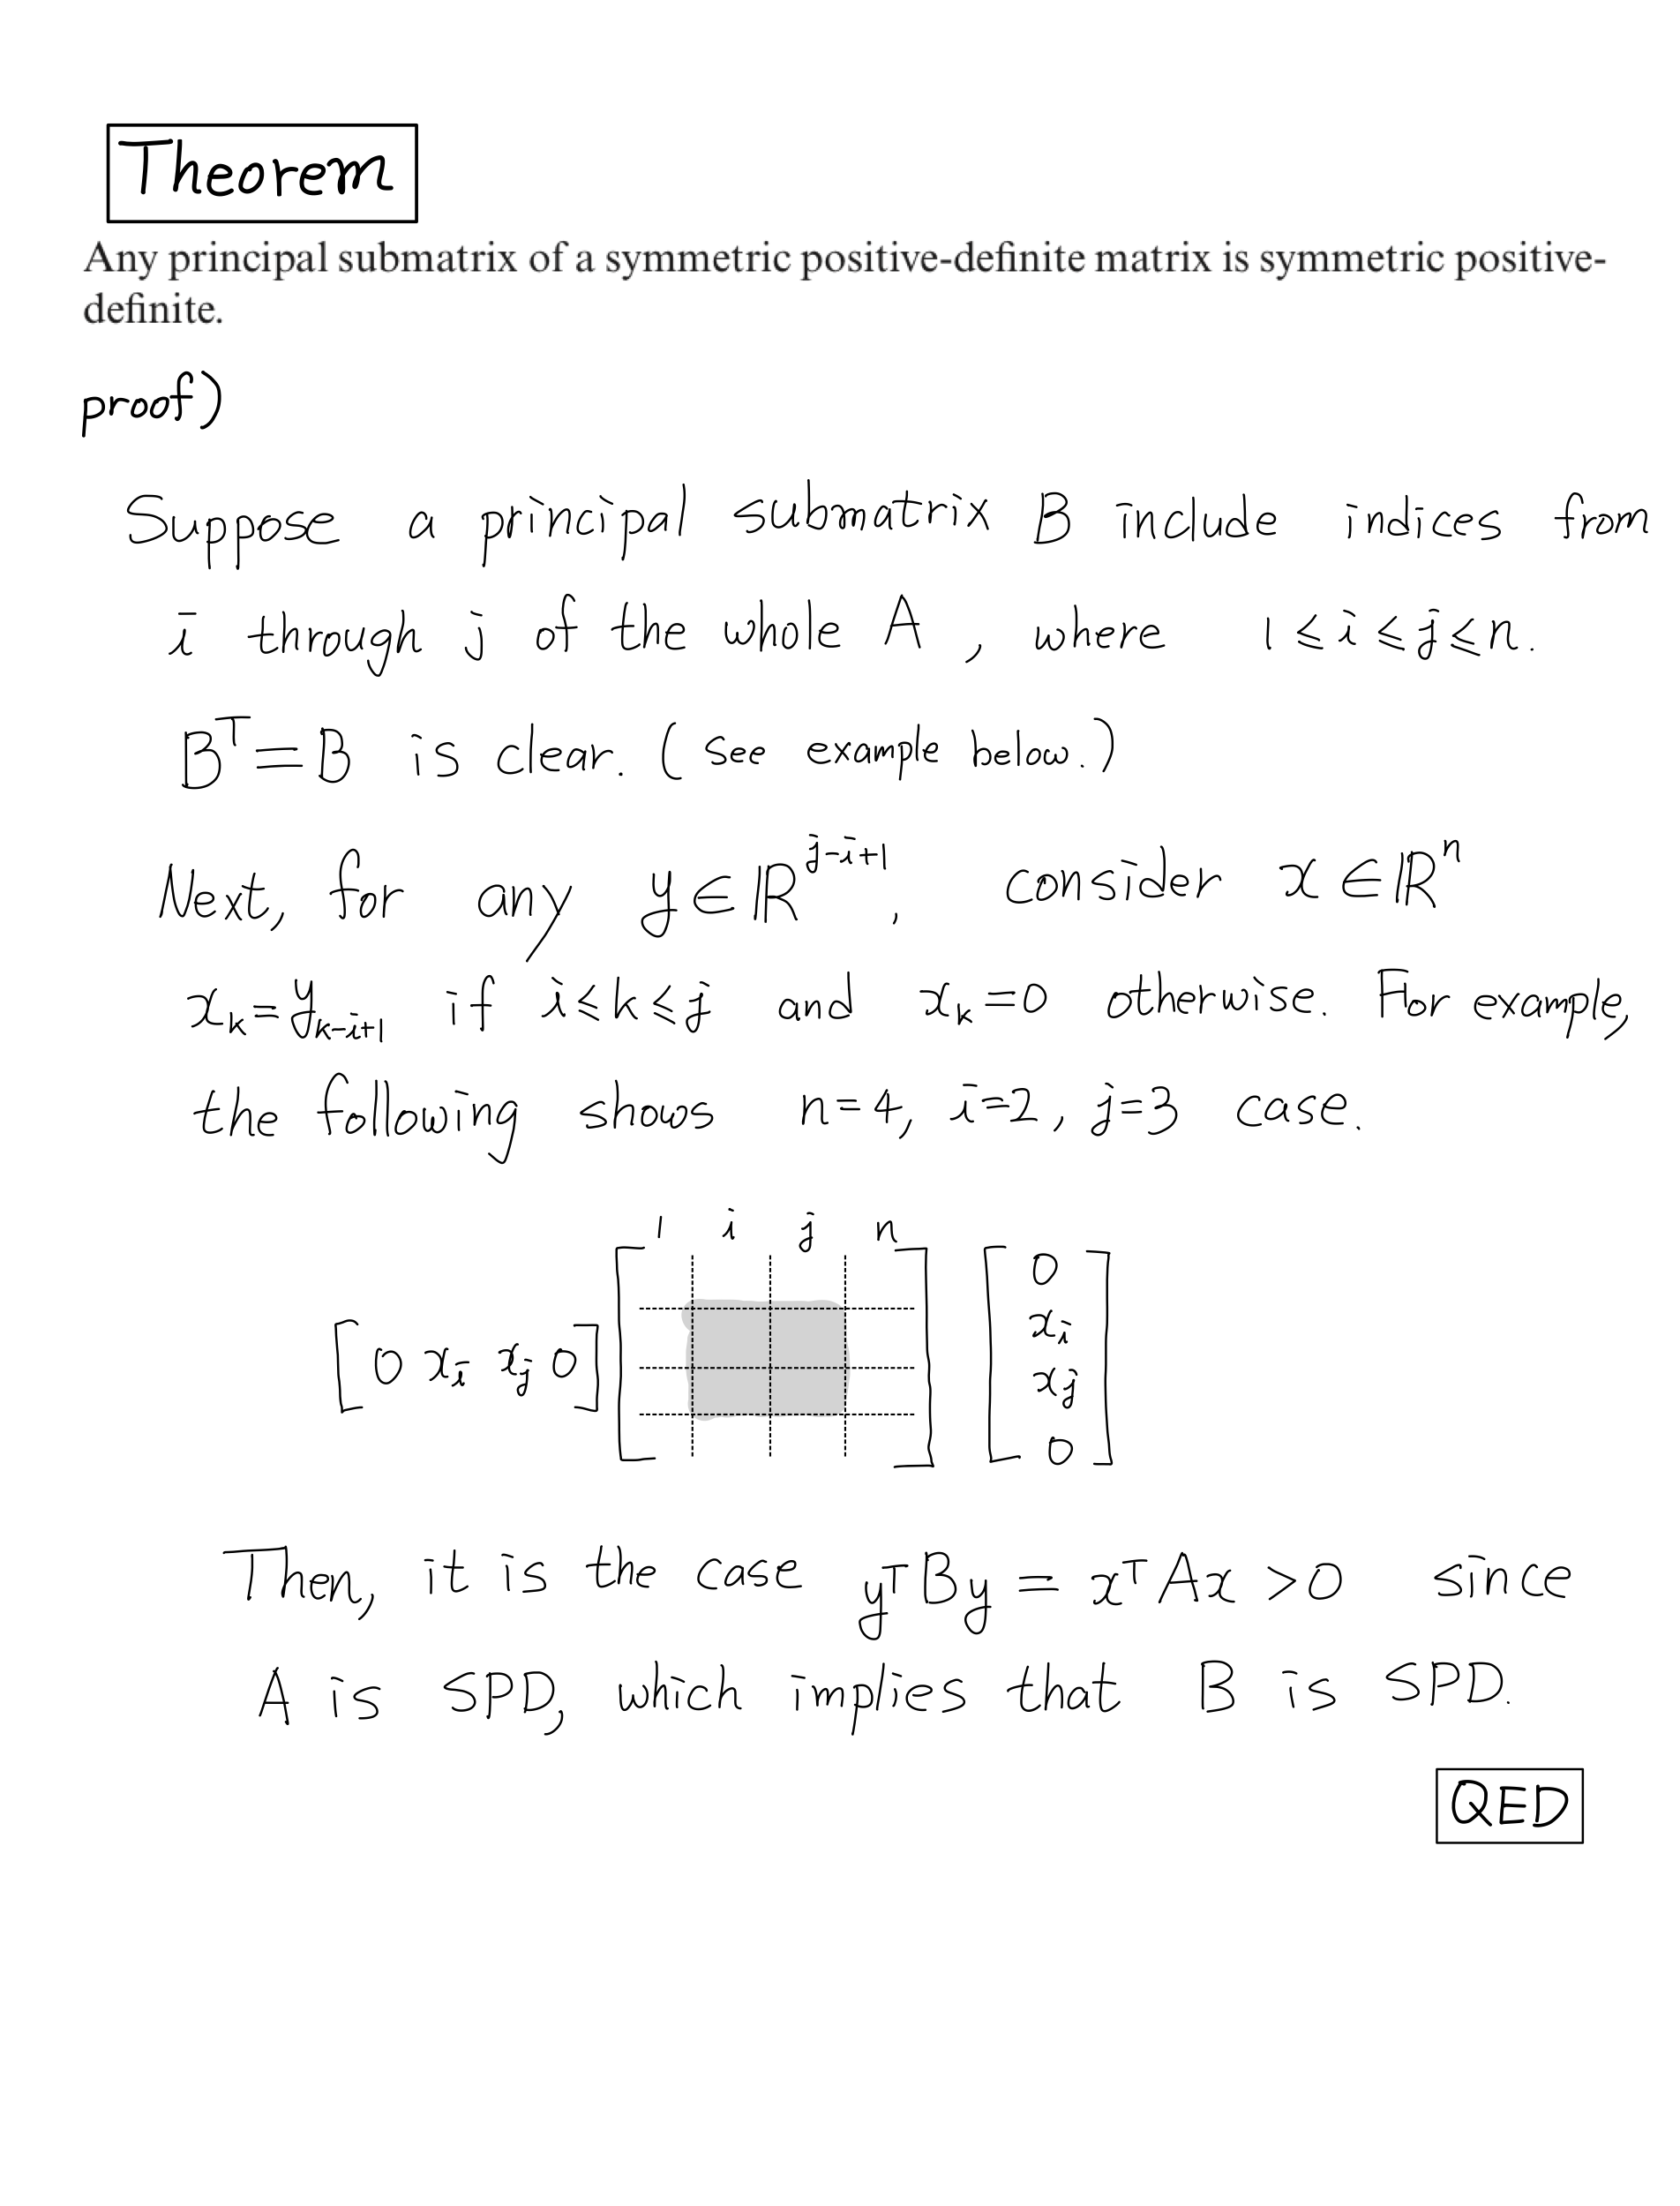 Theorem
Any principal submatrix of a symmetric positive-definite matrix is symmetric positive-
definite.
proof)
Suppose a principal submatrix B include indices from
i through j of the whole A, where 1≤i≤j≤n.
Bᵀ=B is clear. (see example below.)
Next, for any y∈ℝ^{j-i+1}, consider x∈ℝⁿ
x_k=y_{k-i+1} if i≤k≤j and x_k=0 otherwise. For example,
the following shows n=4, i=2, j=3 case.
1 i j n
[0 x_i x_j 0] [ ] [0
x_i
x_j
0]
Then, it is the case yᵀBy = xᵀAx >0 since
A is SPD, which implies that B is SPD.
QED